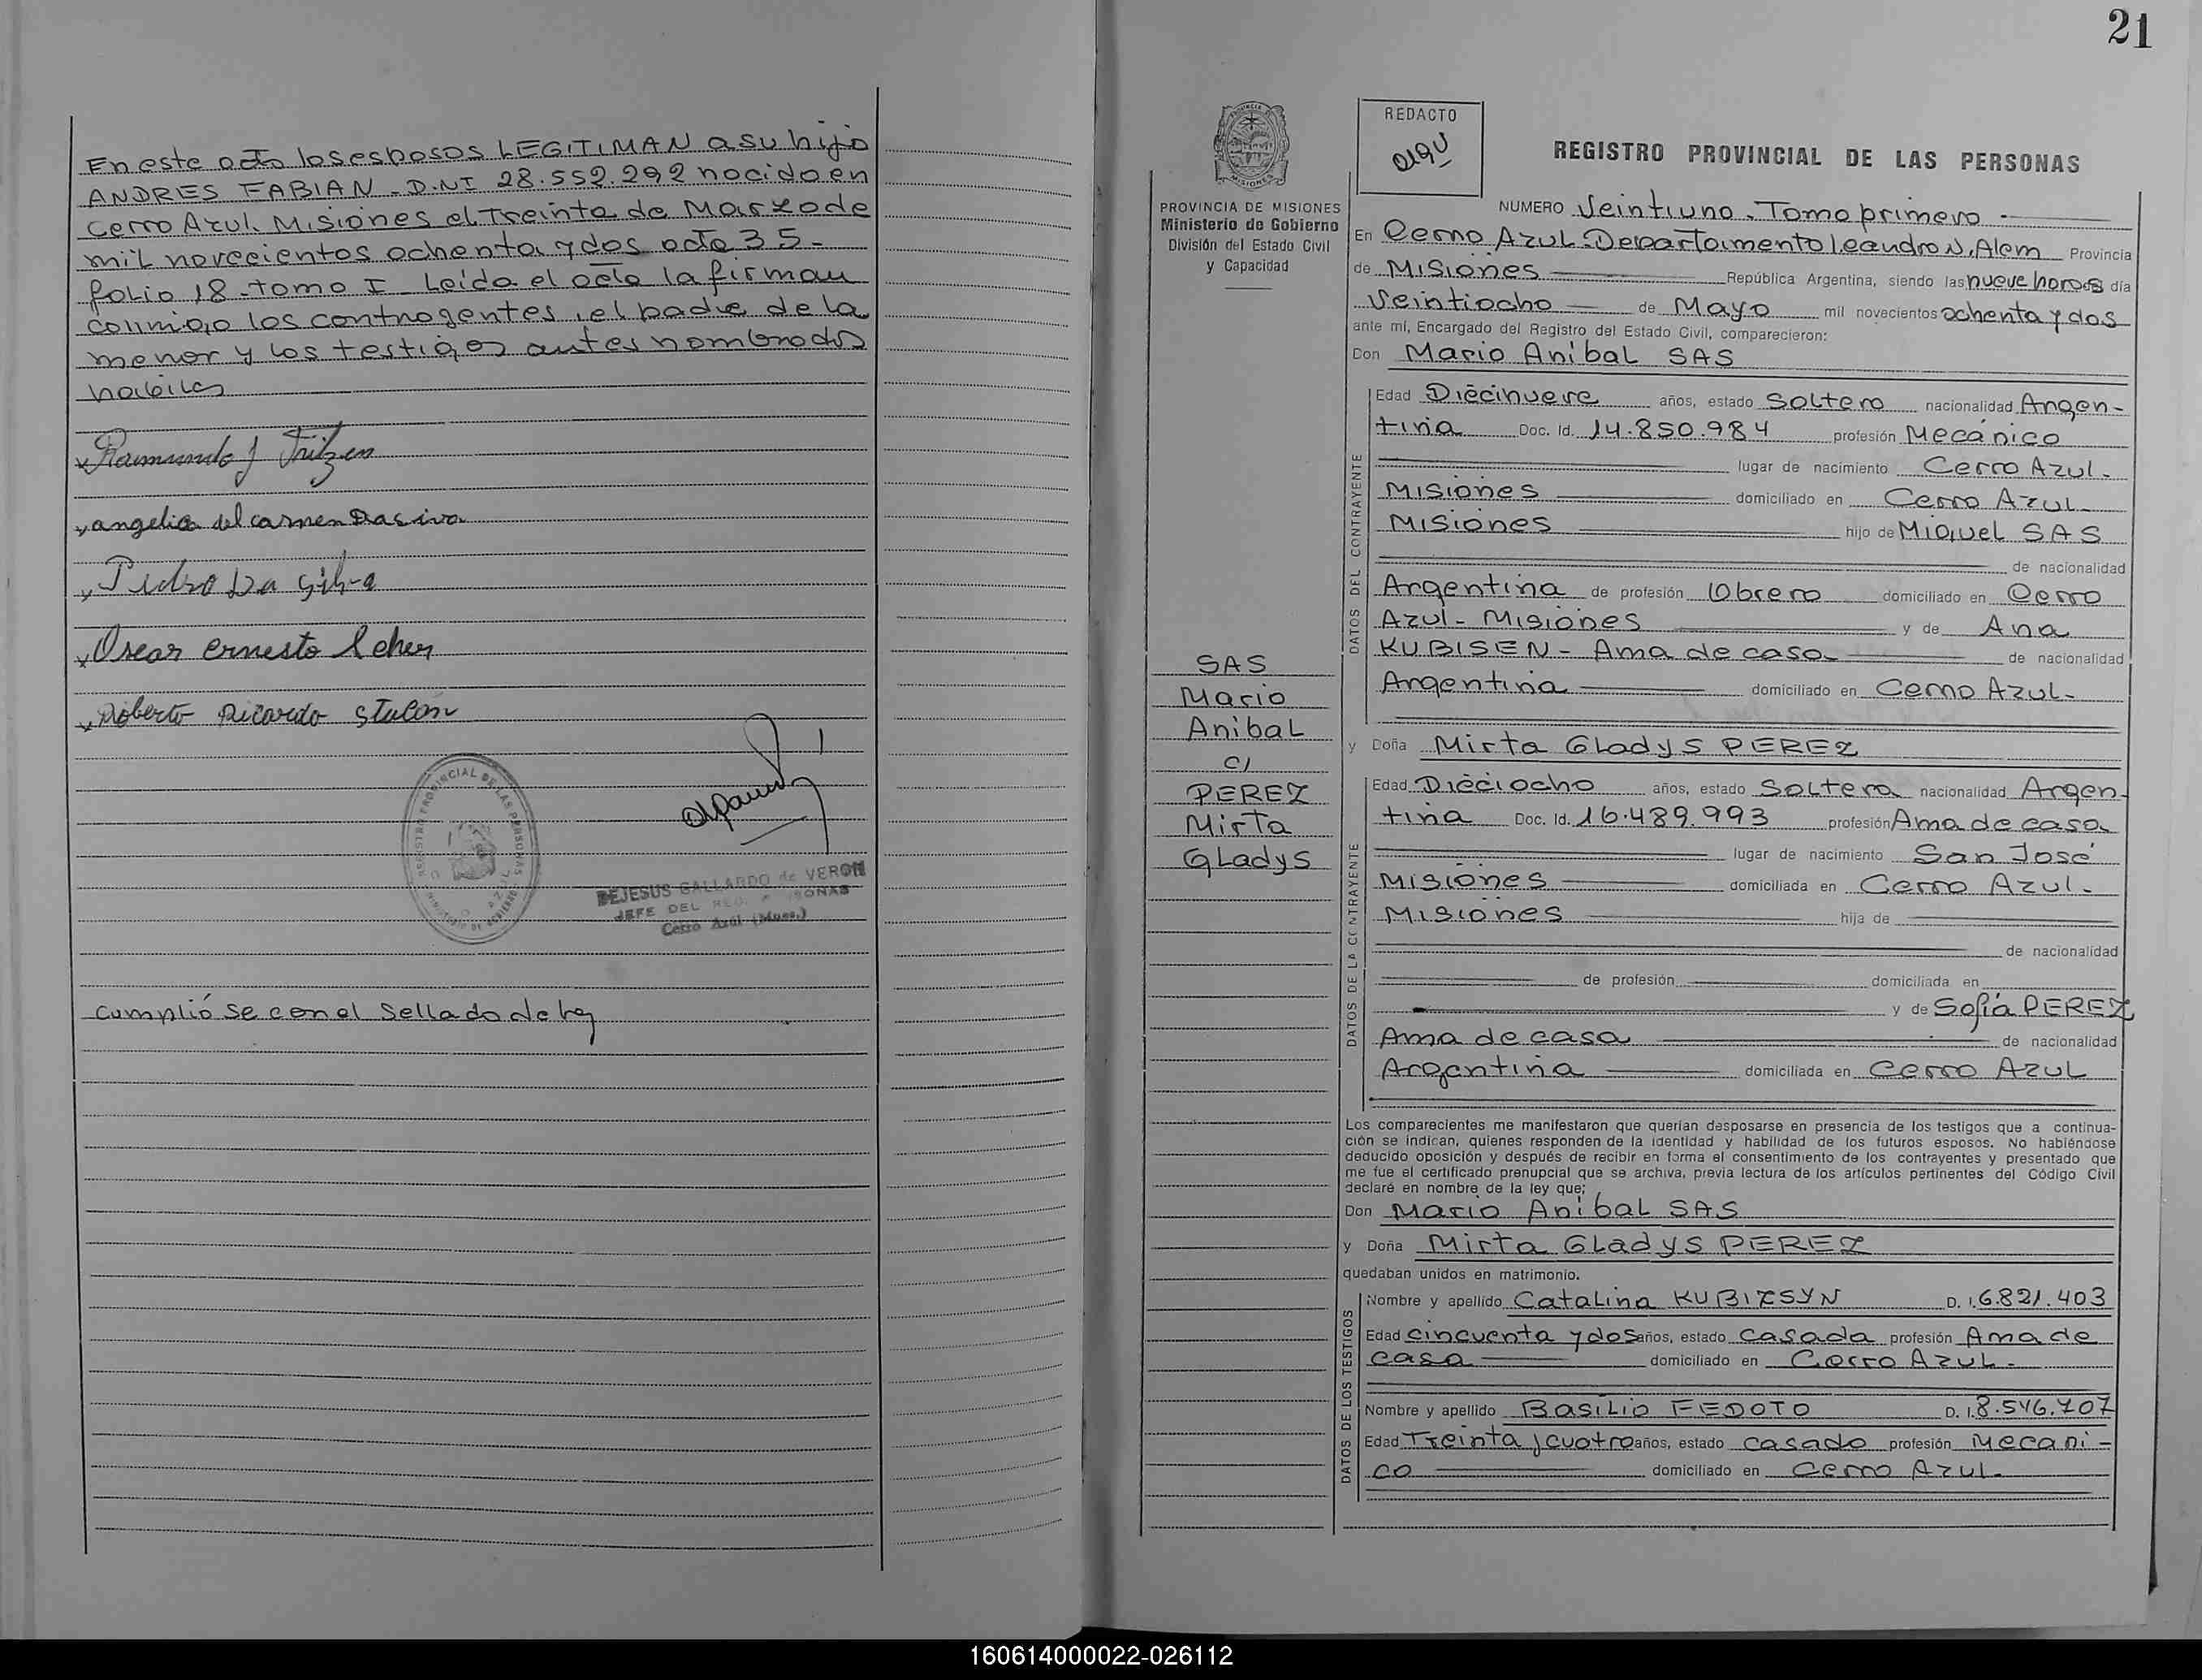 En este acto los esposos LEGITIMAN a su hijo
ANDRES FABIAN - D.N.I 28.552.292 nacido en
Cerro Azul. Misiones el Treinta de Marzo de
mil novecientos ochenta y dos acta 35 -
folio 18 - tomo I Leída el acta la firman
conmigo los contrayentes, el padre de la
menor y los testigos antes nombrados
habiles
x Raimundo J Fritzen
x angelica del carmen Dasiva
x Pedro Da Silva
x Oscar ernesto
x Roberto Ricardo
REGISTRO PROVINCIAL DE LAS PERSONAS
DEJESUS GALLARDO de VERON
JEFE DEL REG.
Cerro Azul (Mnes.)
Cumplióse con el Sellado de ley
21
REDACTO
PROVINCIA DE MISIONES
Ministerio de Gobierno
División del Estado Civil
y Capacidad
SAS
Mario
Anibal
C/
PEREZ
Mirta
Gladys
REGISTRO PROVINCIAL DE LAS PERSONAS
NUMERO Veintiuno. Tomo primero -
En Cerro Azul. Departamento Leandro N. Alem Provincia
de Misiones República Argentina, siendo las nueve horas día
Veintiocho de Mayo mil novecientos ochenta y dos
ante mí, Encargado del Registro del Estado Civil, comparecieron:
Don Mario Anibal SAS
DATOS DEL CONTRAYENTE
Edad Diecinueve años, estado Soltero nacionalidad Argen-
tina Doc. Id. 14.850.984 profesión Mecánico
lugar de nacimiento Cerro Azul-
Misiones domiciliado en Cerro Azul-
Misiones hijo de Miguel SAS
de nacionalidad
Argentina de profesión Obrero domiciliado en Cerro
Azul - Misiones y de Ana
KUBISEN - Ama de casa de nacionalidad
Argentina domiciliado en Cerro Azul-
y Doña Mirta Gladys PEREZ
DATOS DE LA CONTRAYENTE
Edad Dieciocho años, estado Soltera nacionalidad Argen-
tina Doc. Id. 16.489.993 profesión Ama de casa
lugar de nacimiento San José
Misiones domiciliada en Cerro Azul-
Misiones hija de
de nacionalidad
de profesión domiciliada en
y de Sofía PEREZ
Ama de casa de nacionalidad
Argentina domiciliada en Cerro Azul
Los comparecientes me manifestaron que querían desposarse en presencia de los testigos que a continua-
ción se indican, quienes responden de la identidad y habilidad de los futuros esposos. No habiéndose
deducido oposición y después de recibir en forma el consentimiento de los contrayentes y presentado que
me fue el certificado prenupcial que se archiva, previa lectura de los artículos pertinentes del Código Civil
declaré en nombre de la ley que;
Don Mario Anibal SAS
y Doña Mirta Gladys PEREZ
quedaban unidos en matrimonio.
DATOS DE LOS TESTIGOS
Nombre y apellido Catalina KUBIZSYN D. I. 6.821.403
Edad cincuenta y dos años, estado casada profesión Ama de
casa domiciliado en Cerro Azul-
Nombre y apellido Basilio FEDOTO D. I. 8.546.707
Edad Treinta y cuatro años, estado casado profesión Mecani-
co domiciliado en Cerro Azul.
160614000022-026112